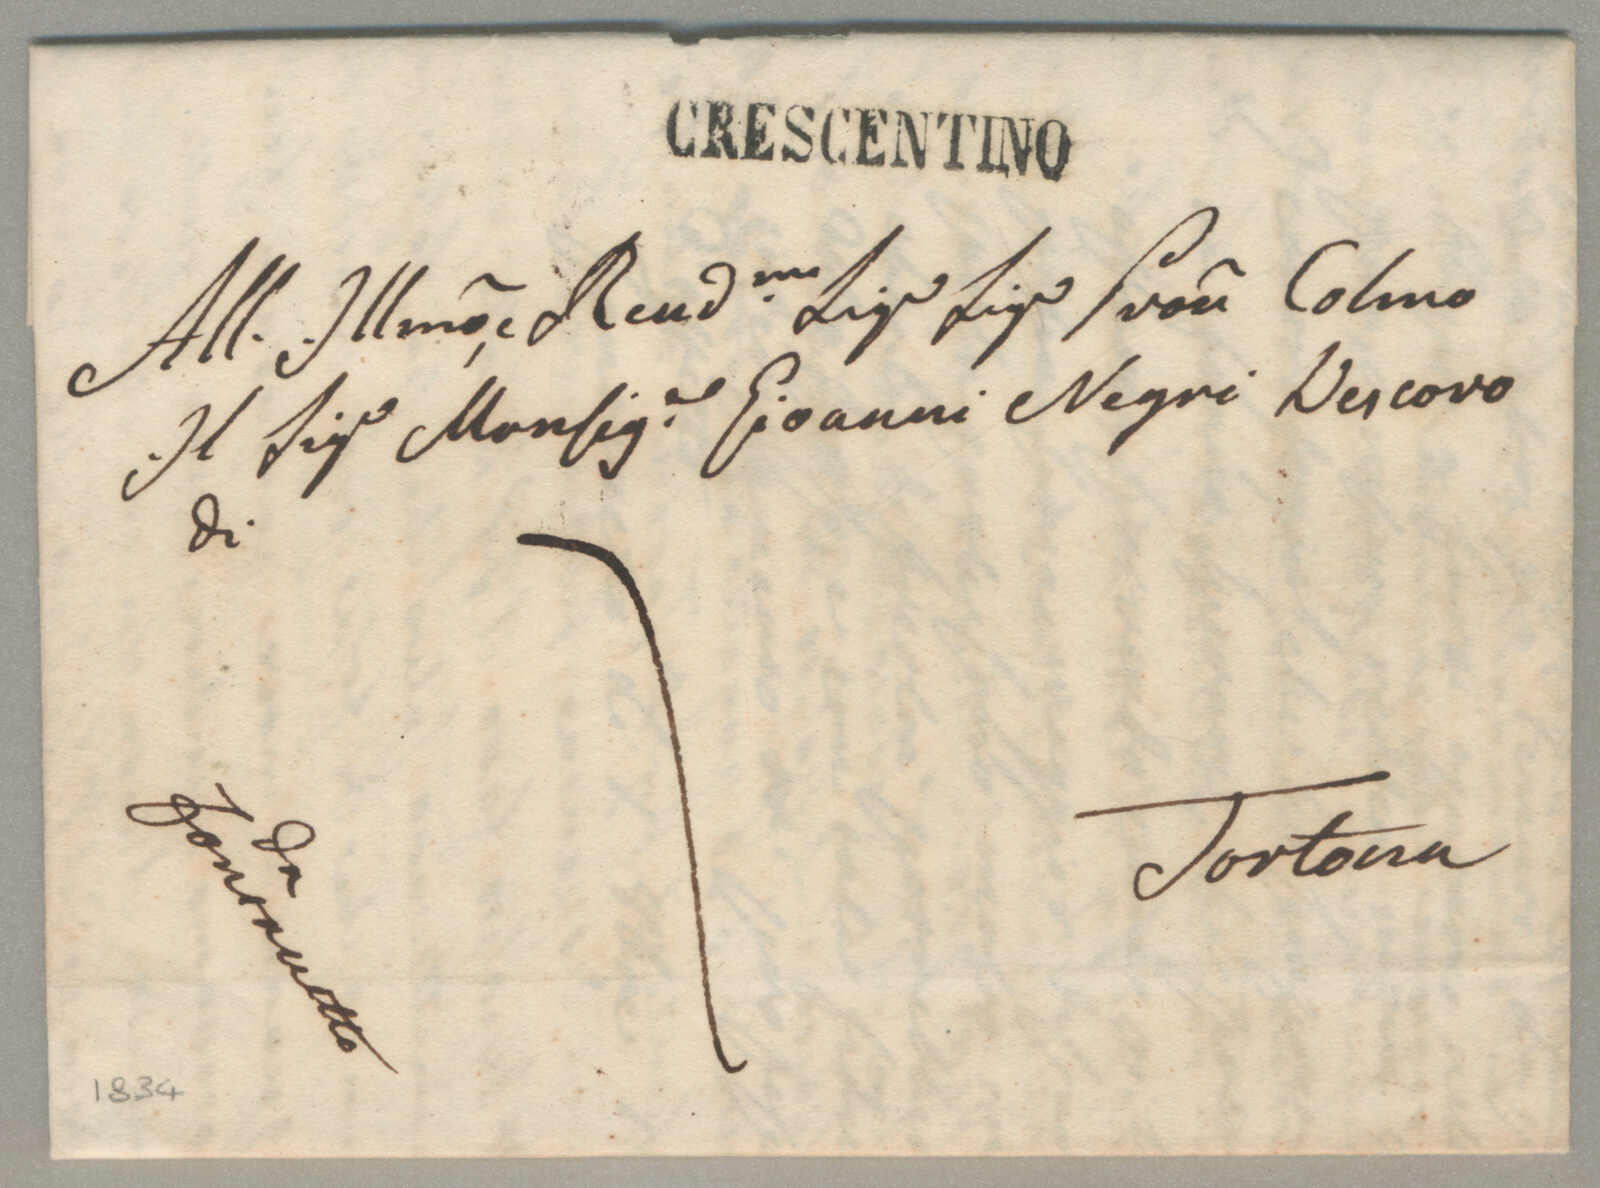 CRESCENTINO
All. Illmõ, e Reud.mo Sigr Sigr Proñ Colmo
Il Sigr Monsig.r Gioanni Negri Vescovo
di
Tortona
da
Fontanetto
1834